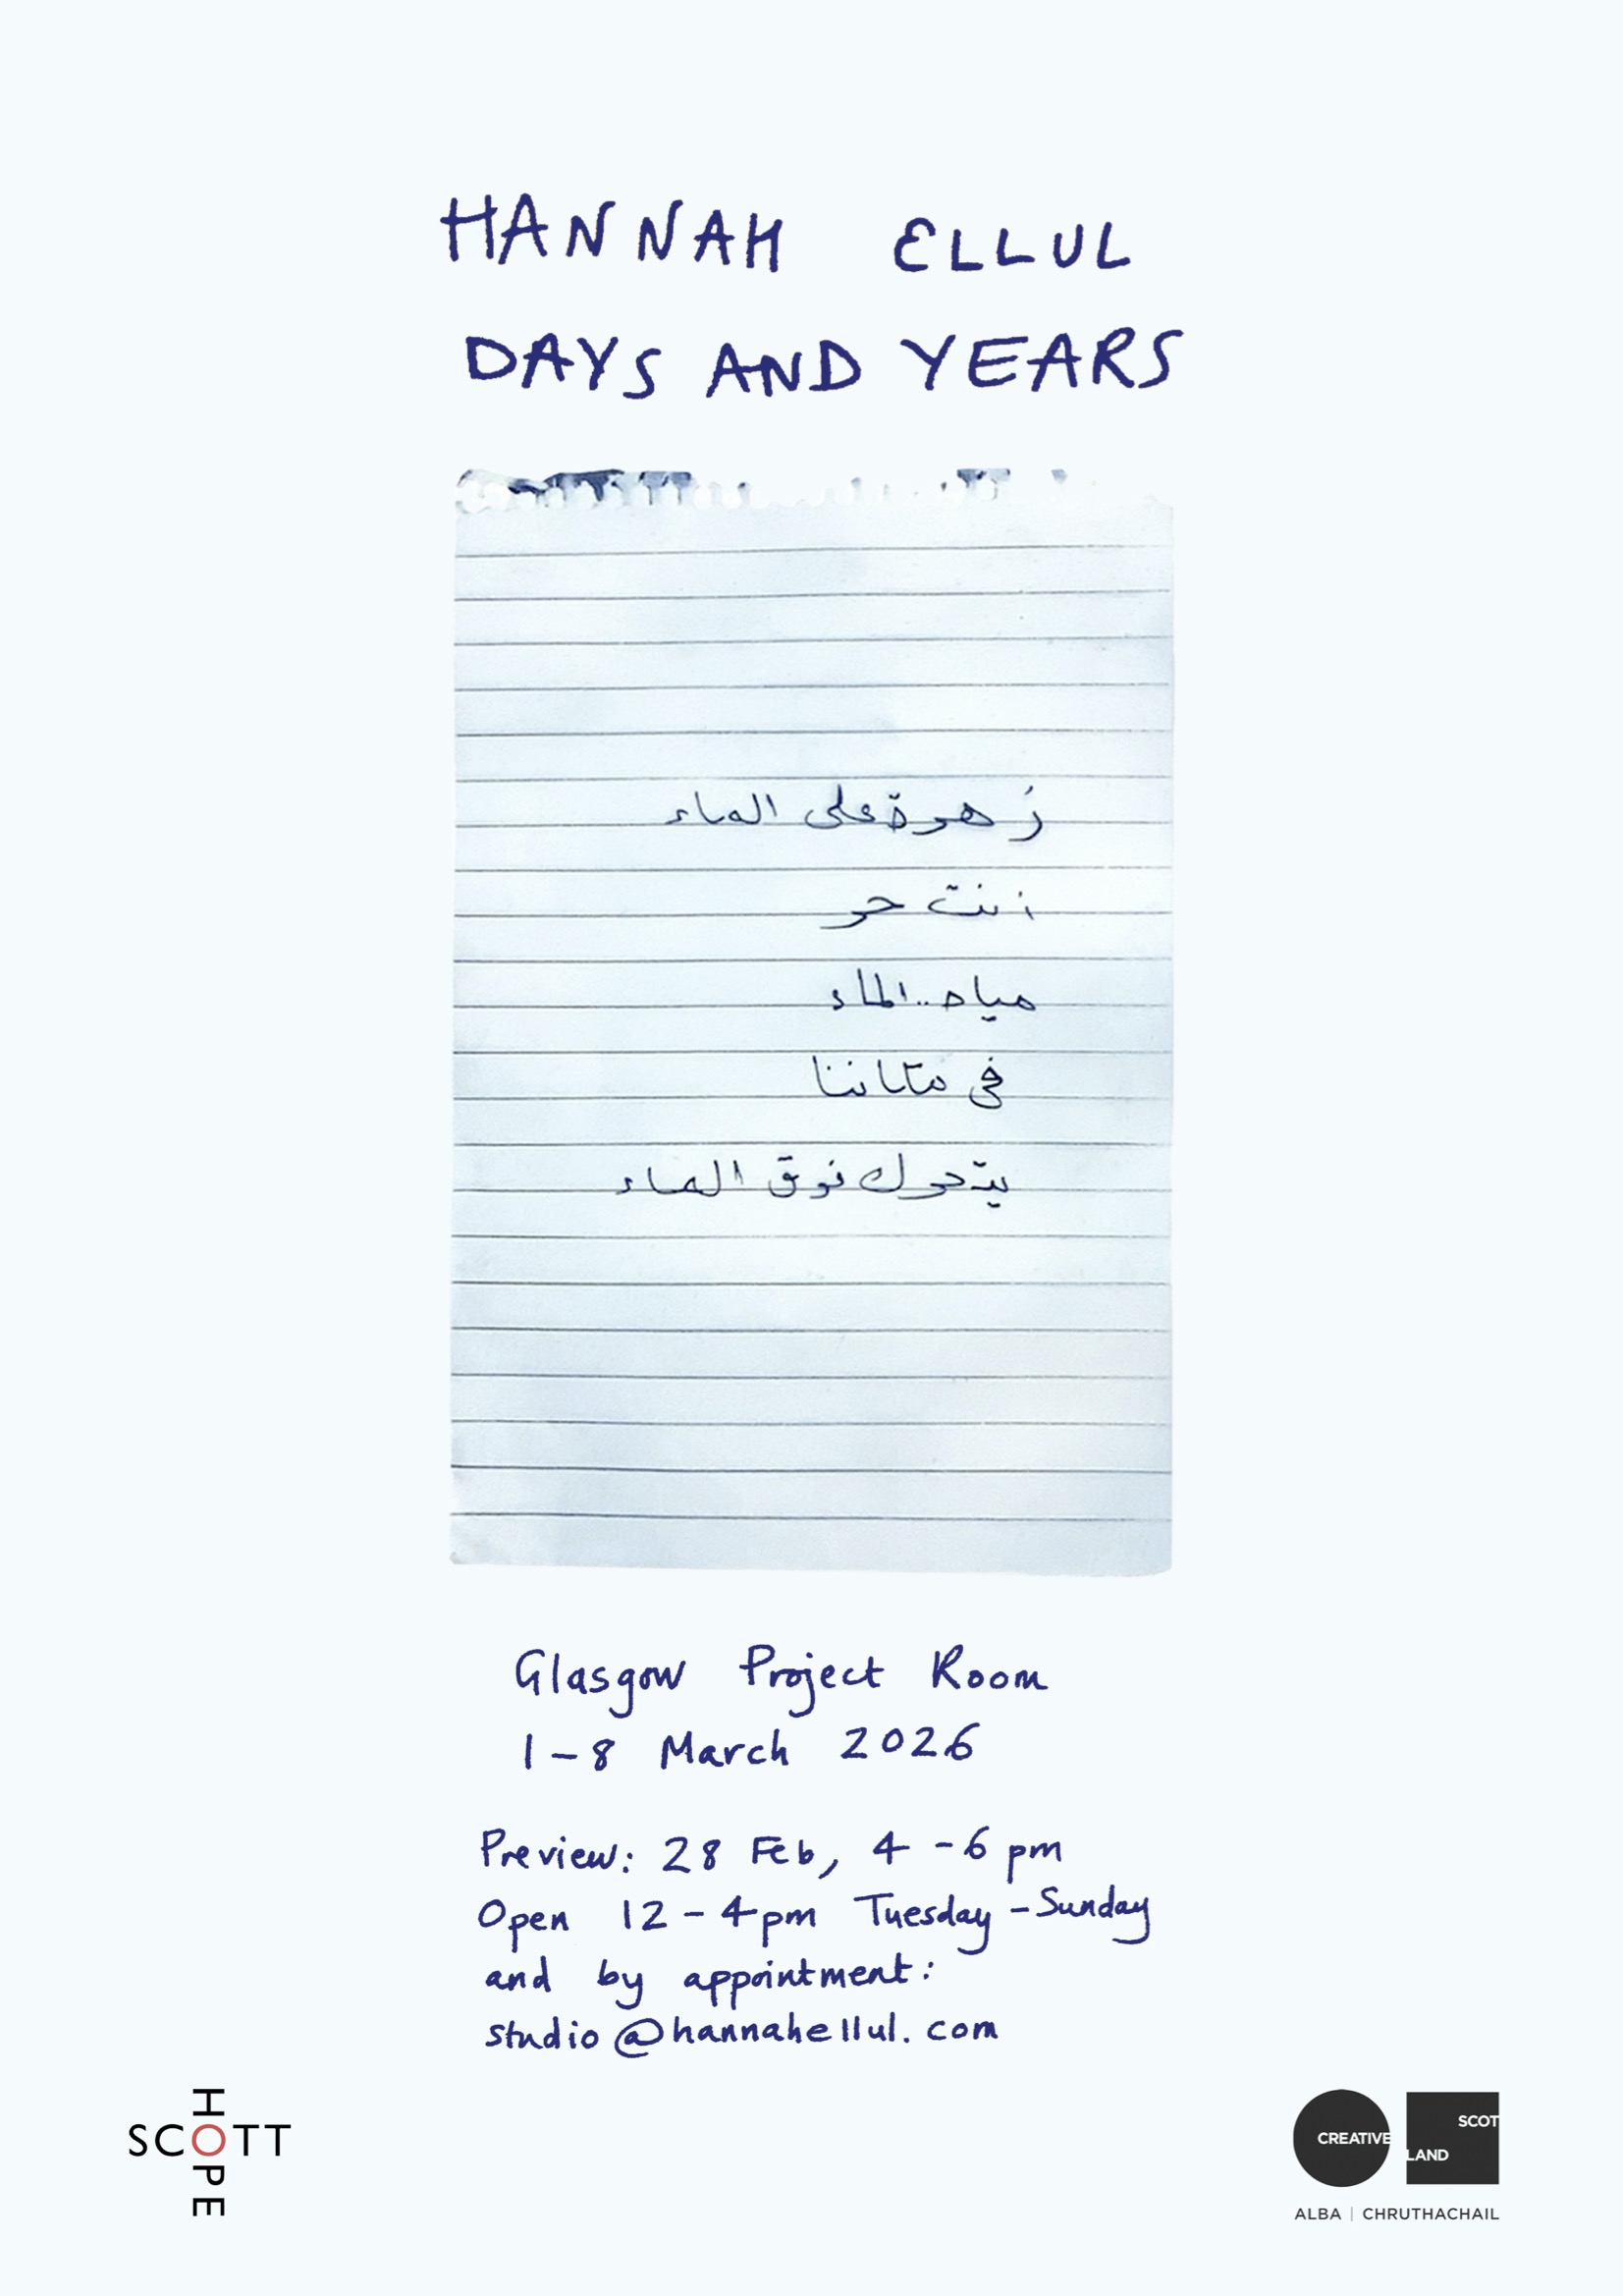 HANNAH ELLUL
DAYS AND YEARS
زهرة على الماء
انت حر
مياه..الماء
في
يتحرك فوق الماء
Glasgow Project Room
1-8 March 2026
Preview: 28 Feb, 4-6 pm
Open 12-4pm Tuesday-Sunday
and by appointment:
studio@hannahellul.com
HOPE
SCOTT
CREATIVE SCOTLAND
ALBA | CHRUTHACHAIL